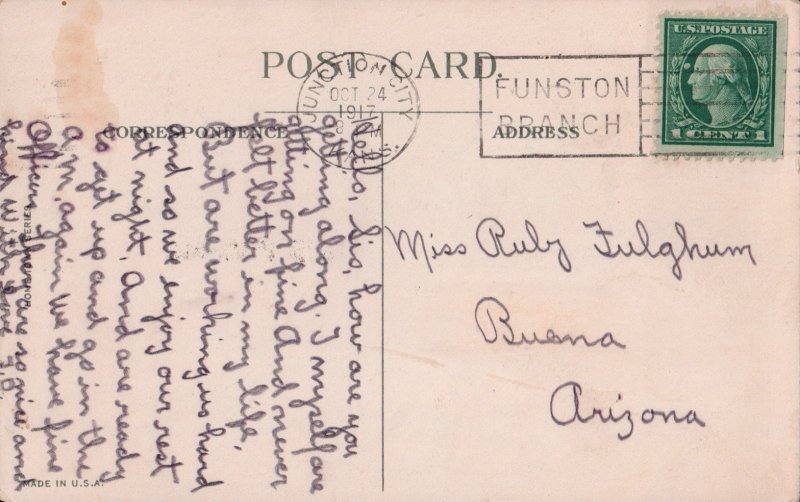 POST CARD.
CORRESPONDENCE
ADDRESS
JUNCTION CITY
OCT 24
1917
8 M
FUNSTON
BRANCH
U.S. POSTAGE
1 CENT 1
Hello, Sis, how are you
getting along. I myself are
getting on fine And never
felt better in my life,
But are working us hard
and so we enjoy our rest
at night. And are ready
to get up and go in the
a.m. again We have fine
Officers, they are so nice and
kind With love
Miss Ruby Fulghum
Buena
Arizona
SERIES
MADE IN U.S.A.